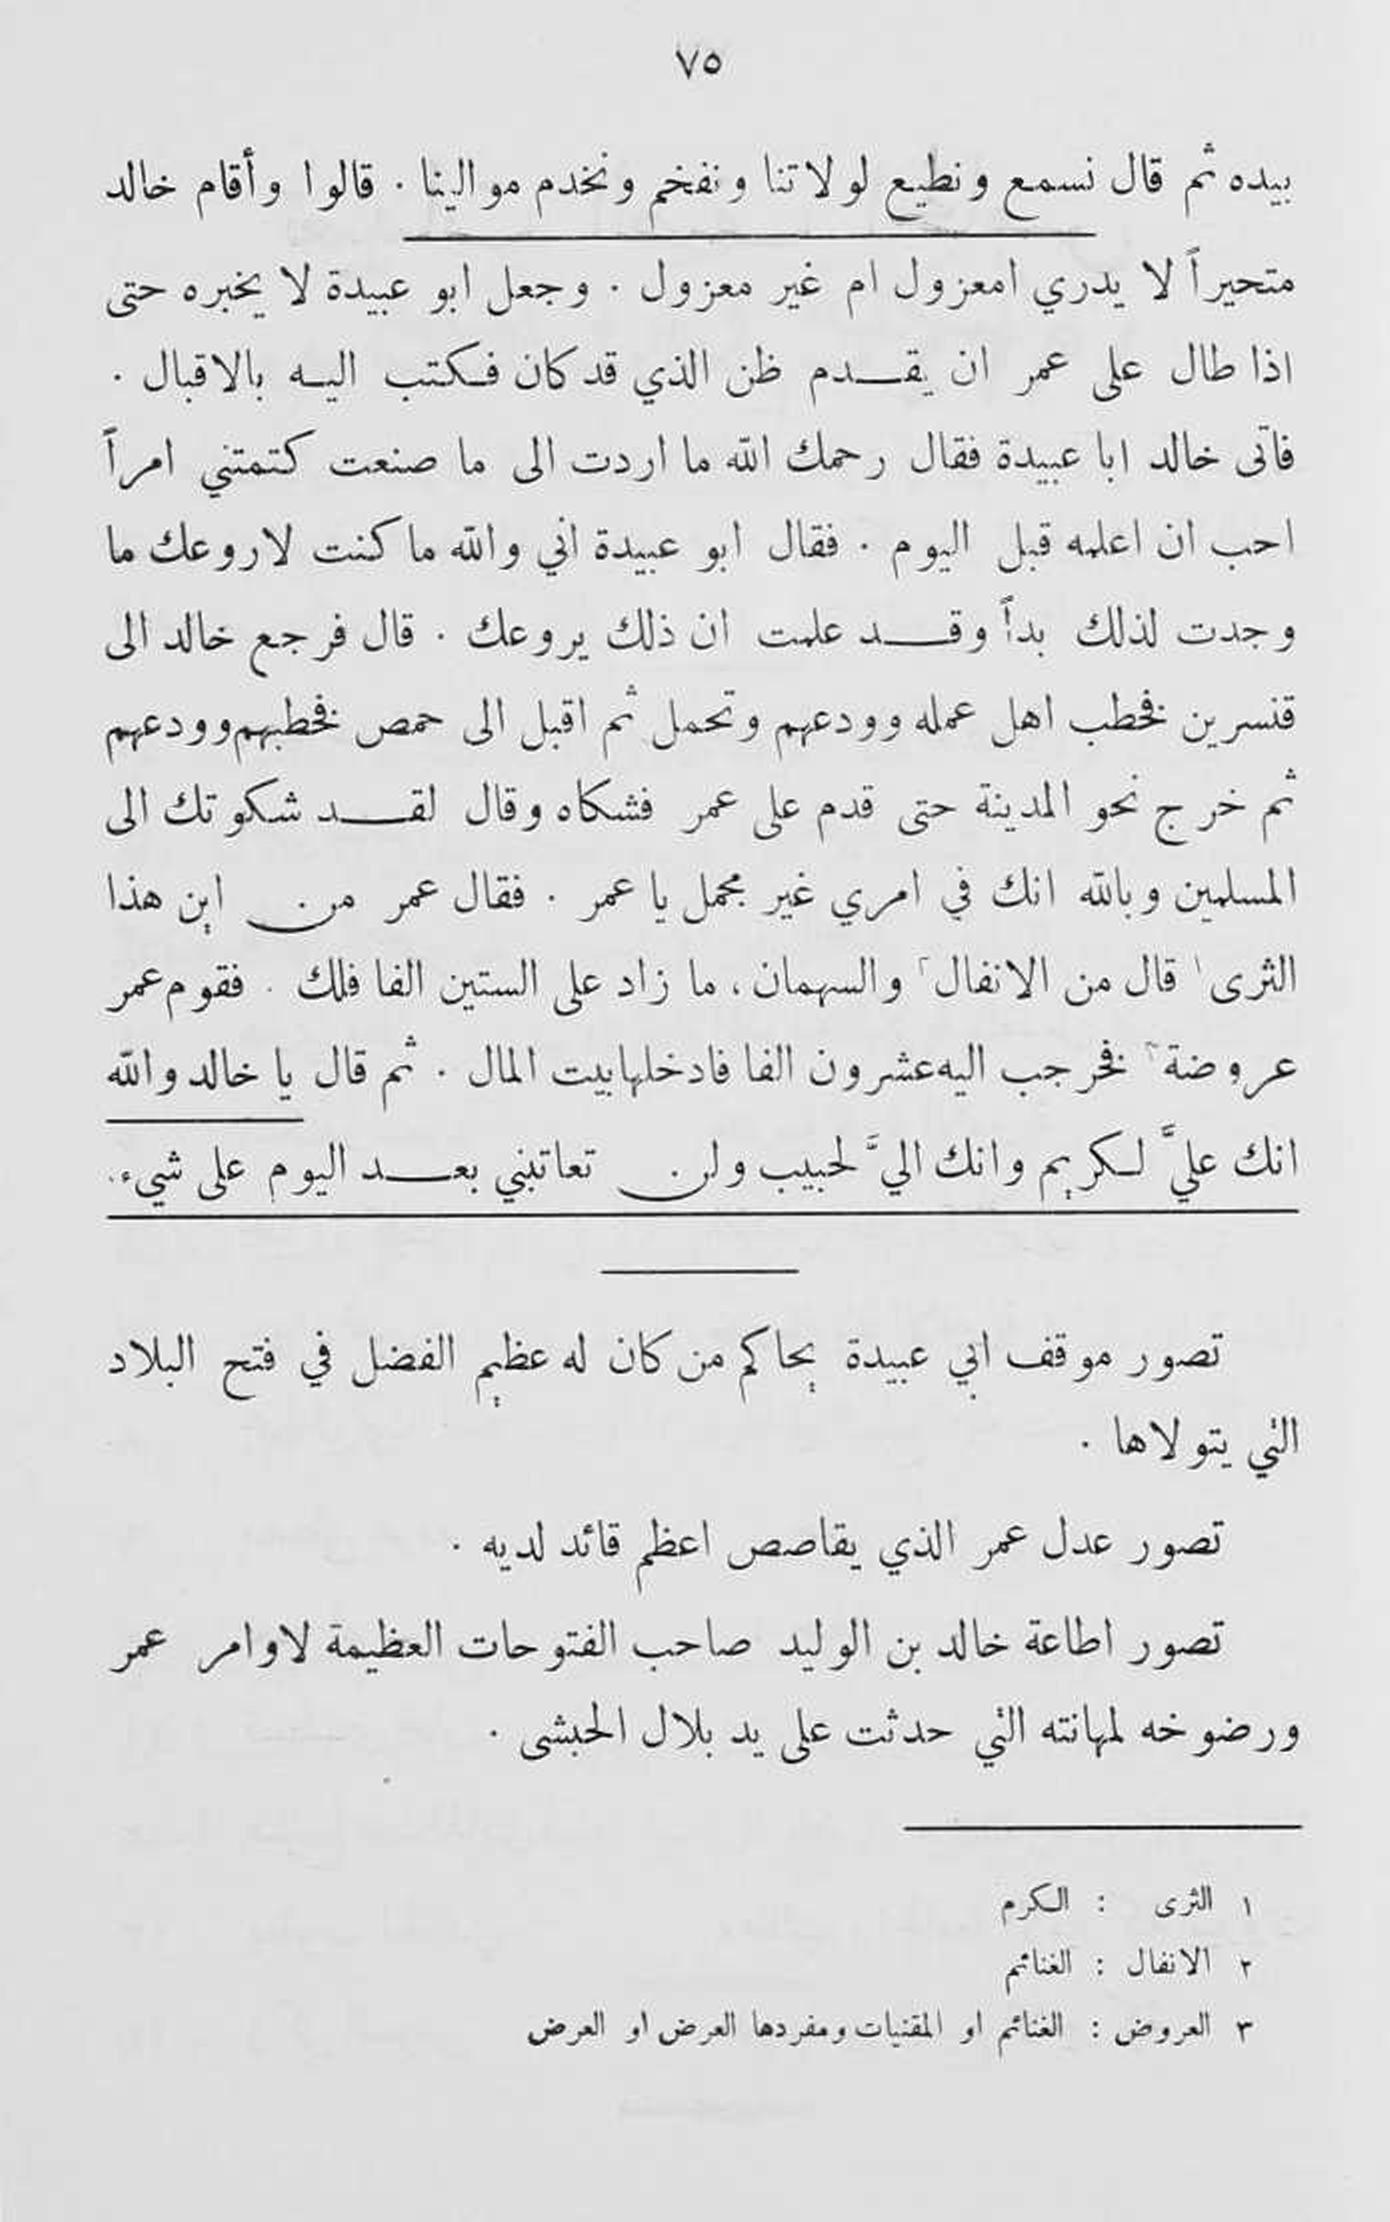 ٧٥
بيده ثم قال نسمع ونطيع لولاتنا ونفخم ونخدم موالينا . قالوا وأقام خالد
متحيراً لا يدري امعزول ام غير معزول . وجعل ابو عبيدة لا يخبره حتى
اذا طال على عمر ان يقدم ظن الذي قد كان فكتب اليه بالاقبال .
فآتى خالد ابا عبيدة فقال رحمك الله ما اردت الى ما صنعت كتمتني امراً
احب ان اعلمه قبل اليوم . فقال ابو عبيدة اني والله ما كنت لاروعك ما
وجدت لذلك بدأً وقد علمت ان ذلك يروعك . قال فرجع خالد الى
قنسرين فخطب اهل عمله وودعهم وتحمل ثم اقبل الى حمص فخطبهم وودعهم
ثم خرج نحو المدينة حتى قدم على عمر فشكاه وقال لقد شكوتك الى
المسلمين وبالله انك في امري غير مجمل يا عمر . فقال عمر من اين هذا
الثرى ١ قال من الانفال ٢ والسهمان ، ما زاد على الستين الفا فلك . فقوم عمر
عروضة ٣ فخرجب اليه عشرون الفا فادخلها بيت المال . ثم قال يا خالد والله
انك عليَّ لكريم وانك اليَّ لحبيب ولن تعاتبني بعد اليوم على شيء.
تصور موقف ابي عبيدة يحاكم من كان له عظيم الفضل في فتح البلاد
التي يتولاها .
تصور عدل عمر الذي يقاصص اعظم قائد لديه .
تصور اطاعة خالد بن الوليد صاحب الفتوحات العظيمة لاوامر عمر
ورضوخه لمهانته التي حدثت على يد بلال الحبشى .
١ الثرى : الكرم
٢ الانفال : الغنائم
٣ العروض : الغنائم او المقنيات ومفردها العرض او العرض